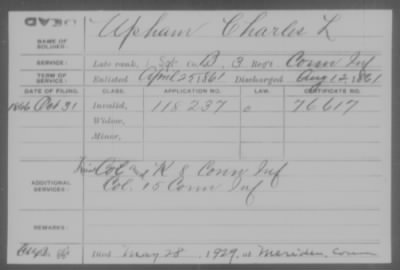 DEAD
NAME OF SOLDIER: Upham Charles L
SERVICE: Late rank, 1 Sgt Co. B, 3 Reg't Conn Inf
TERM OF SERVICE: Enlisted April 25 1861 Discharged Aug 12, 1861
DATE OF FILING. CLASS. APPLICATION NO. LAW. CERTIFICATE NO.
1866 Oct. 31 Invalid, 118 237 76 617
Widow,
Minor,
ADDITIONAL SERVICES: K 8 Conn Inf
Col. 15 Conn Inf
REMARKS:
Died May 28, 1929, at Meriden, Conn